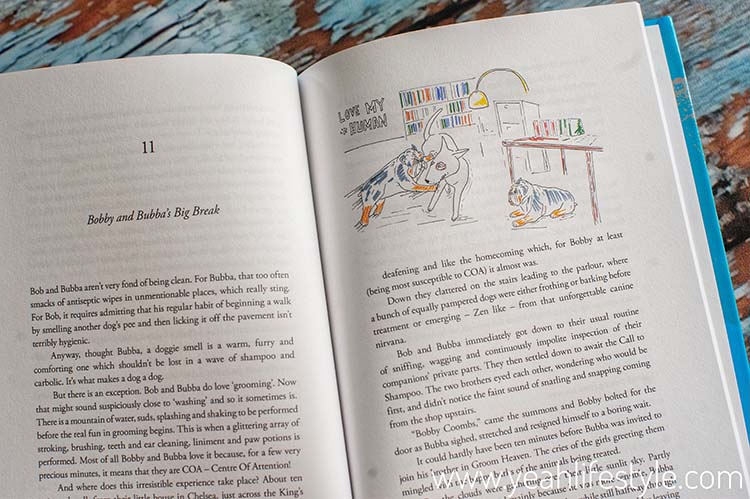 11
Bobby and Bubba's Big Break
Bob and Bubba aren't very fond of being clean. For Bubba, that too often
smacks of antiseptic wipes in unmentionable places, which really sting.
For Bob, it requires admitting that his regular habit of beginning a walk
by smelling another dog's pee and then licking it off the pavement isn't
terribly hygienic.
Anyway, thought Bubba, a doggie smell is a warm, furry and
comforting one which shouldn't be lost in a wave of shampoo and
carbolic. It's what makes a dog a dog.
But there is an exception. Bob and Bubba do love 'grooming'. Now
that might sound suspiciously close to 'washing' and so it sometimes is.
There is a mountain of water, suds, splashing and shaking to be performed
before the real fun in grooming begins. This is when a glittering array of
stroking, brushing, teeth and ear cleaning, liniment and paw potions is
performed. Most of all Bobby and Bubba love it because, for a few very
precious minutes, it means that they are COA – Centre Of Attention!
And where does this irresistible experience take place? About ten
from their little house in Chelsea, just across the King's
LOVE MY
HUMAN
deafening and like the homecoming which, for Bobby at least
(being most susceptible to COA) it almost was.
Down they clattered on the stairs leading to the parlour, where
a bunch of equally pampered dogs were either frothing or barking before
treatment or emerging – Zen like – from that unforgettable canine
nirvana.
Bob and Bubba immediately got down to their usual routine
of sniffing, wagging and continuously impolite inspection of their
companions' private parts. They then settled down to await the Call to
Shampoo. The two brothers eyed each other, wondering who would be
first, and didn't notice the faint sound of snarling and snapping coming
from the shop upstairs.
"Bobby Coombs," came the summons and Bobby bolted for the
door as Bubba sighed, stretched and resigned himself to a boring wait.
It could hardly have been ten minutes before Bubba was invited to
join his brother in Groom Heaven. The cries of the girls greeting them
mingled
sounds of
animals being treated.
sunlit sky. Partly
the clouds were
while still having
www.yeahlifestyle.com